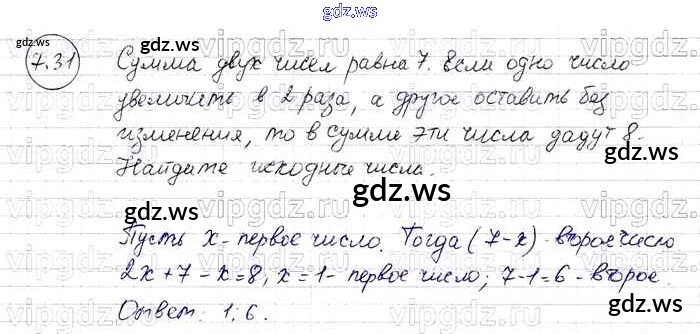 gdz.ws
7.31 Сумма двух чисел равна 7. Если одно число
увеличить в 2 раза, а другое оставить без
изменения, то в сумме эти числа дадут 8.
Найдите исходные числа.
gdz.ws
Пусть x - первое число. Тогда (7-x) - второе число
2x+7-x=8, x=1- первое число; 7-1=6 - второе.
Ответ: 1; 6.
gdz.ws